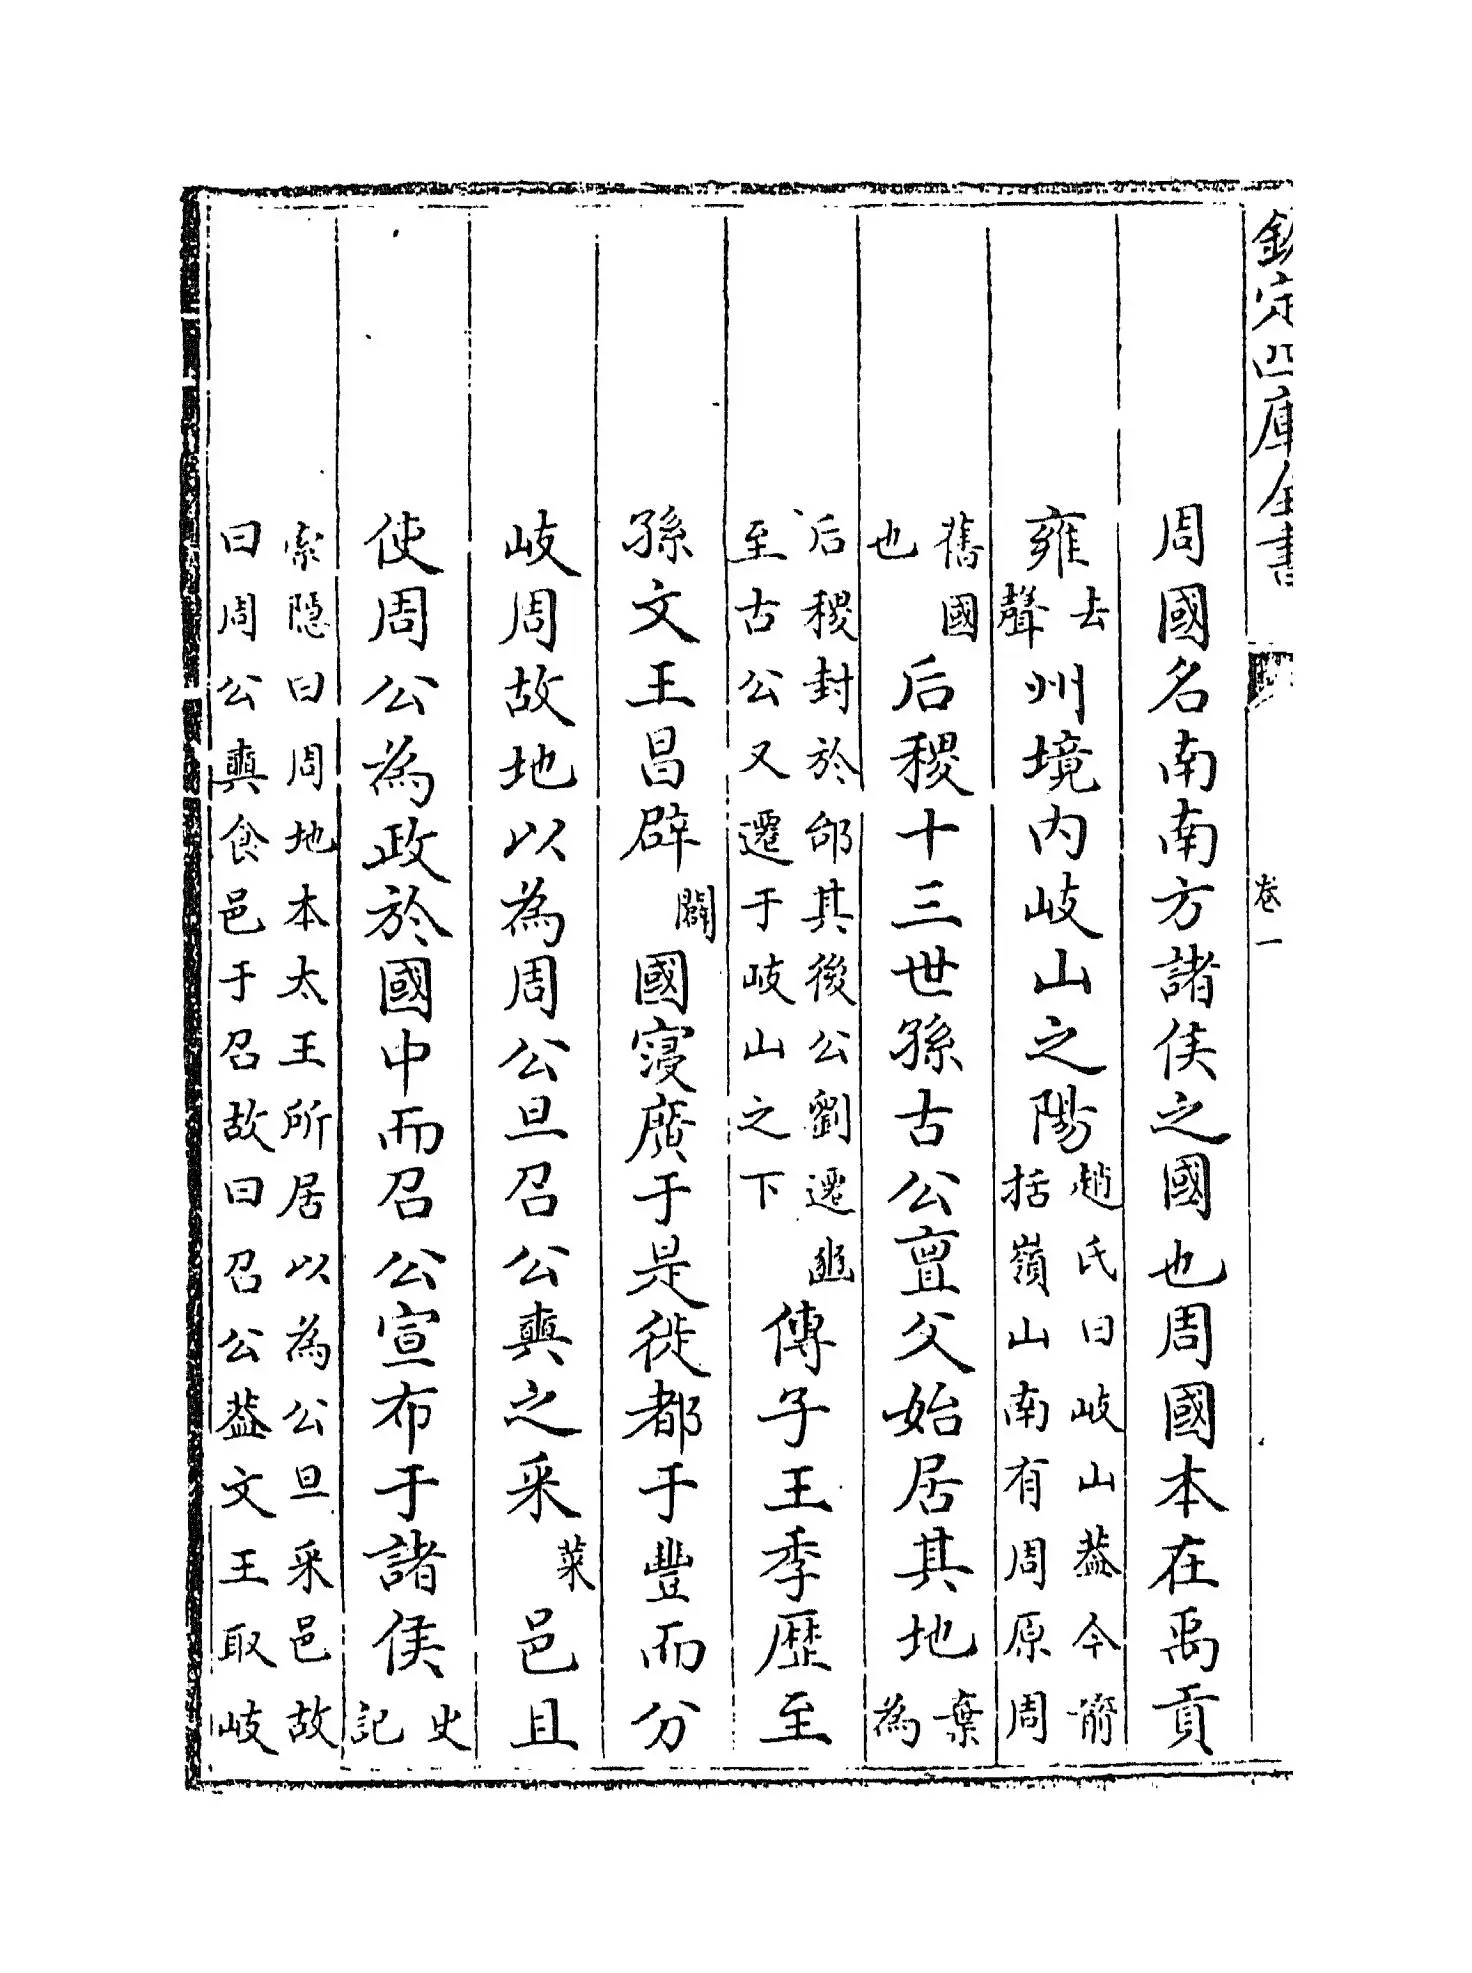 欽定四庫全書
卷一
周國名南南方諸侯之國也周國本在禹貢
雍去聲州境内岐山之陽趙氏曰岐山葢今箭括嶺山南有周原周
舊國也后稷十三世孫古公亶父始居其地棄為
后稷封於邰其後公劉遷豳至古公又遷于岐山之下傳子王季歴至
孫文王昌辟闢國寖廣于是徙都于豐而分
岐周故地以為周公旦召公奭之采菜邑且
使周公為政於國中而召公宣布于諸侯史記
索隱曰周地本太王所居以為公旦采邑故
曰周公奭食邑于召故曰召公葢文王取岐